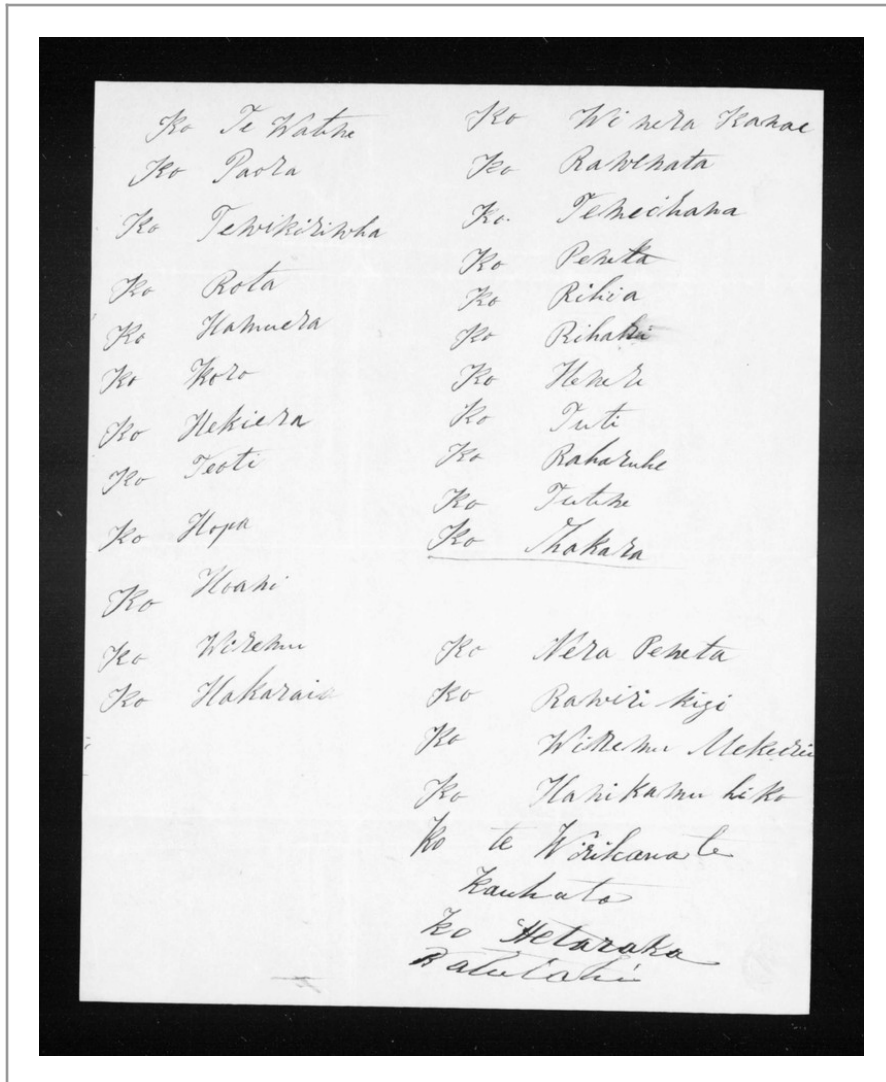 Ko Te Watene
Ko Paora
Ko Tewikiriwha
Ko Rota
Ko Hamuera
Ko Koro
Ko Hekiera
Ko Teoti
Ko Hopa
Ko Hoani
Ko Wiremu
Ko Hakaraia
Ko Wi nera Kanae
Ko Rawenata
Ko Temeihana
Ko Peneta
Ko Rihia
Ko Rihari
Ko Heneri
Ko Tuti
Ko Raharuhe
Ko Tutine
Ko Ihakara
Ko Nera Peneta
Ko Rawiri kigi
Ko Wiremu
Ko Hanikamu hiko
Ko te Wirihana te
Kauhato
Ko Hetaraka